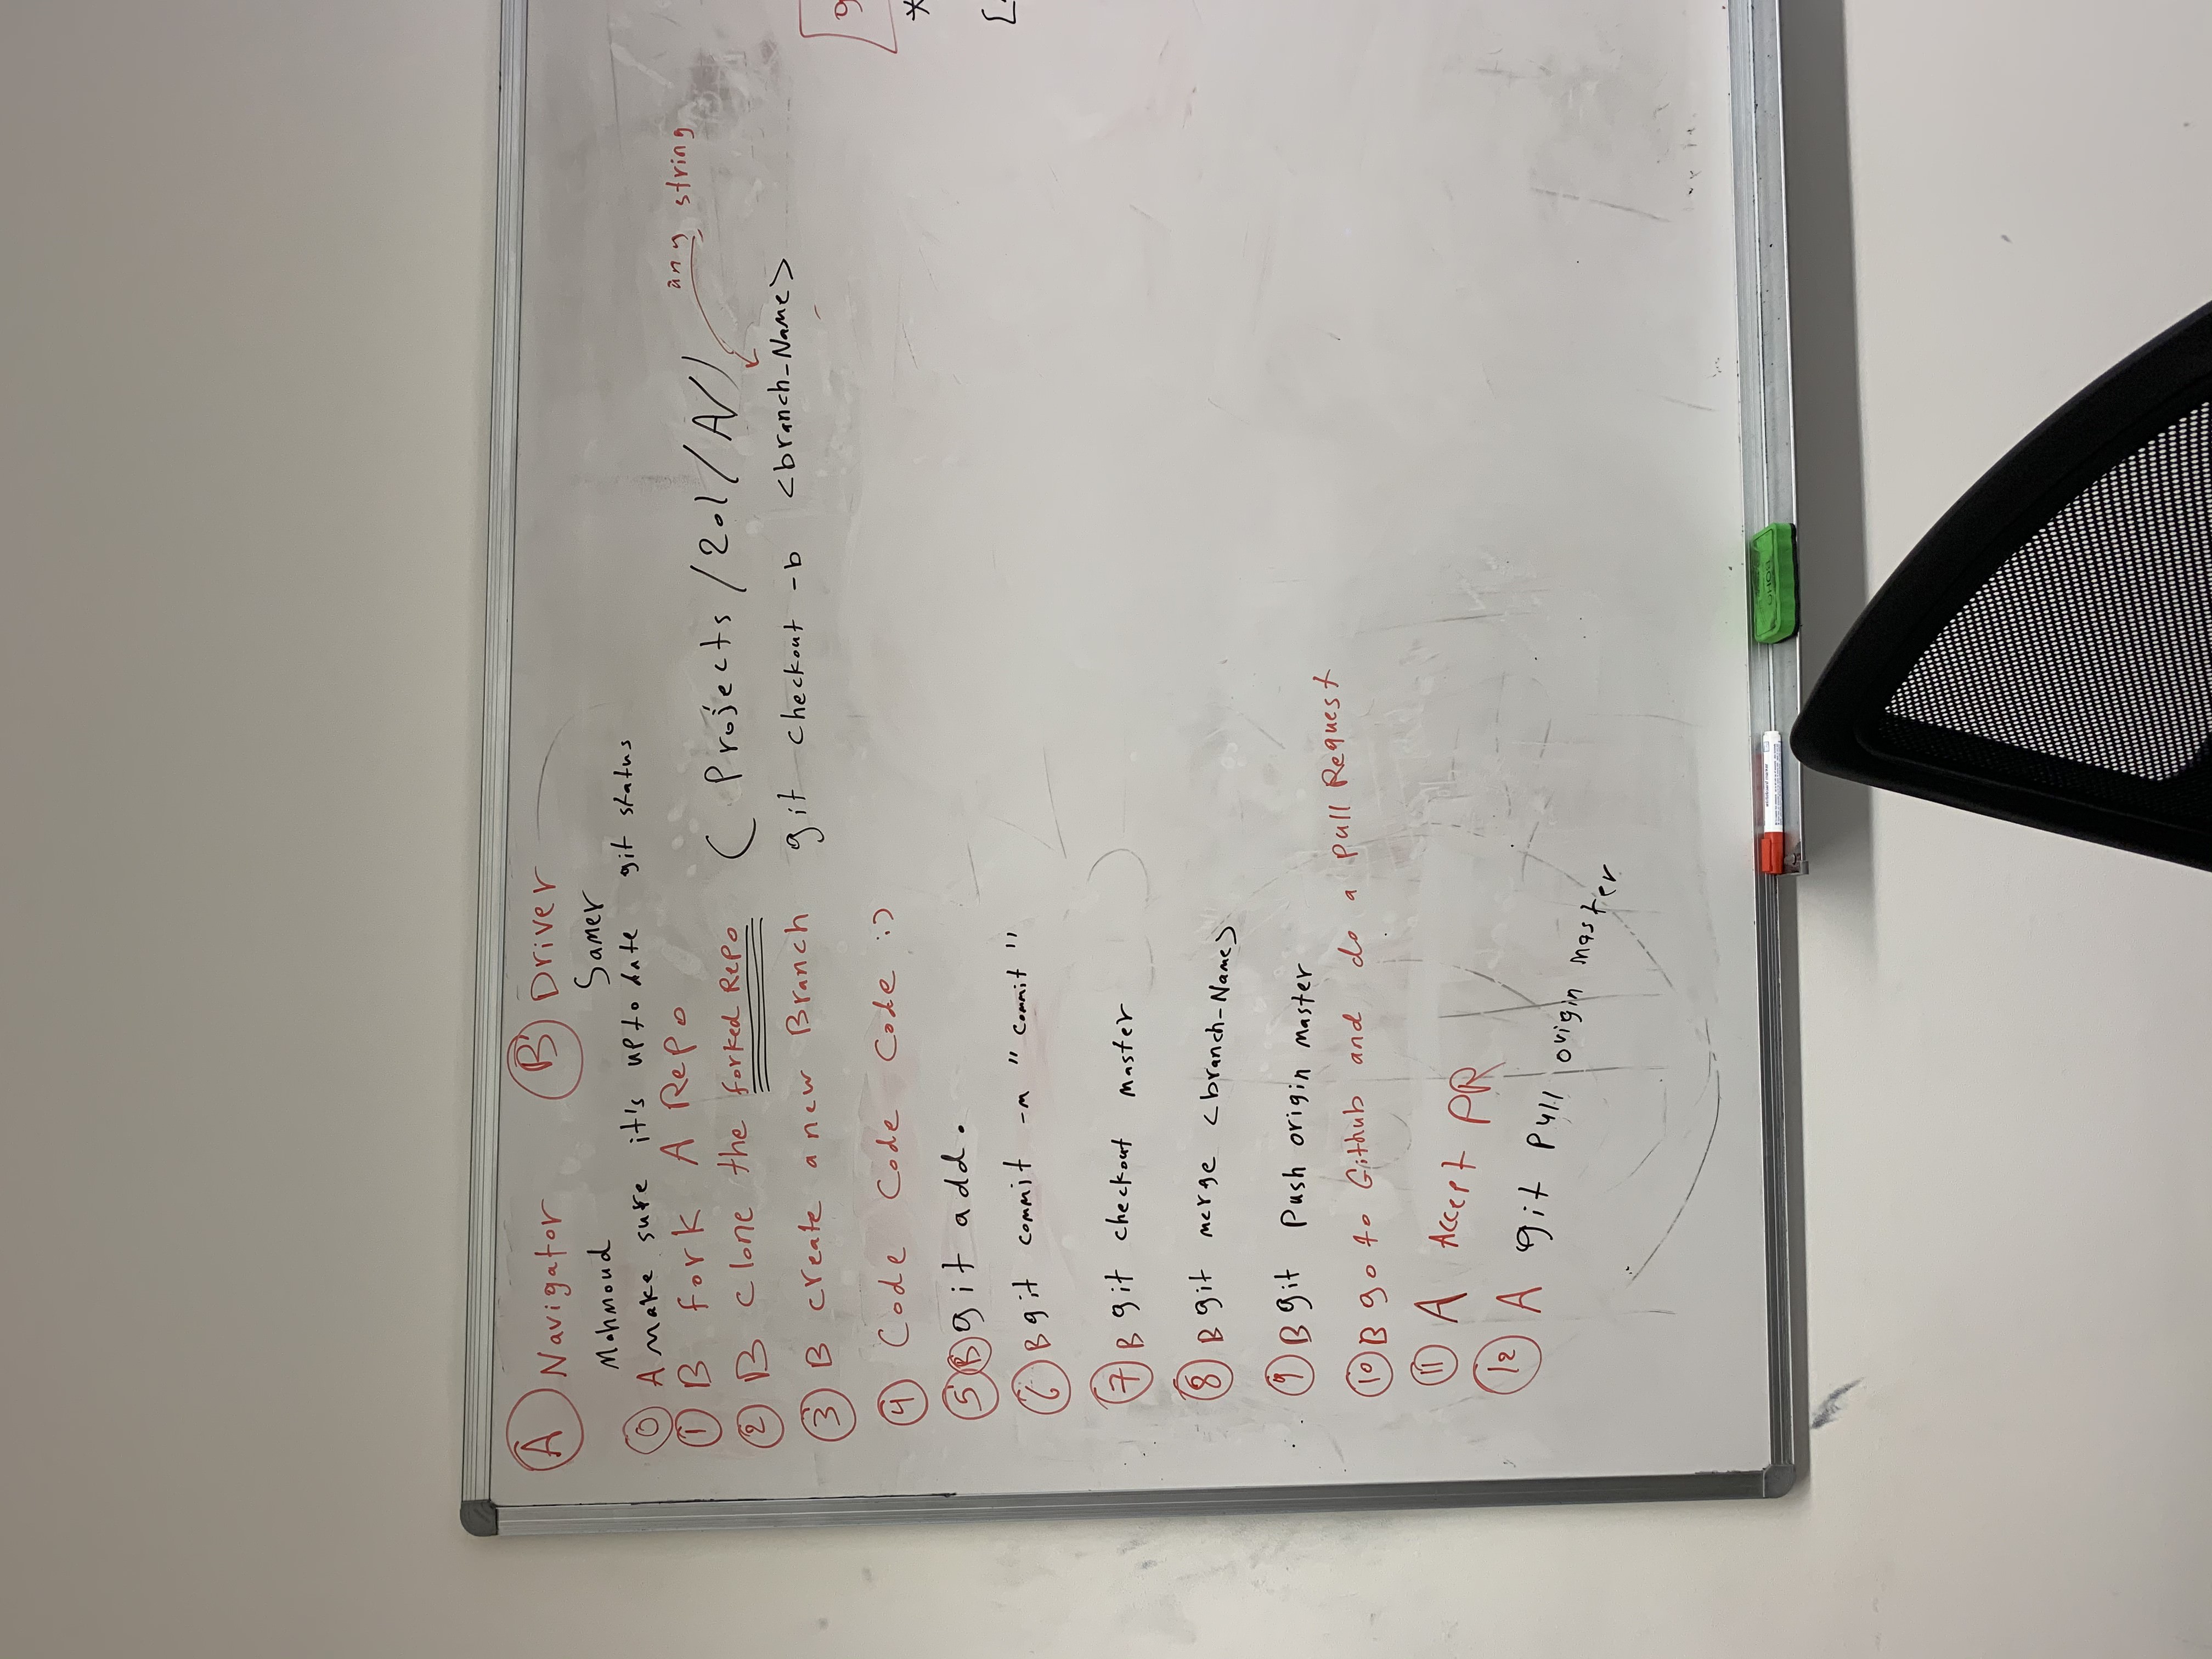 A Navigator B Driver
Mahmoud Samer
0 A make sure it's up to date git status
1 B fork A Repo
any string
2 B clone the forked Repo ( Projects/201/A/)
3 B create a new Branch git checkout -b <branch-Name>
4 Code Code Code :)
5 B git add .
6 B git commit -m "commit"
7 B git checkout master
8 B git merge <branch-Name>
9 B git Push origin master
10 B go to Github and do a pull Request
11 A Accept PR
12 A git Pull origin master
whiteboard marker